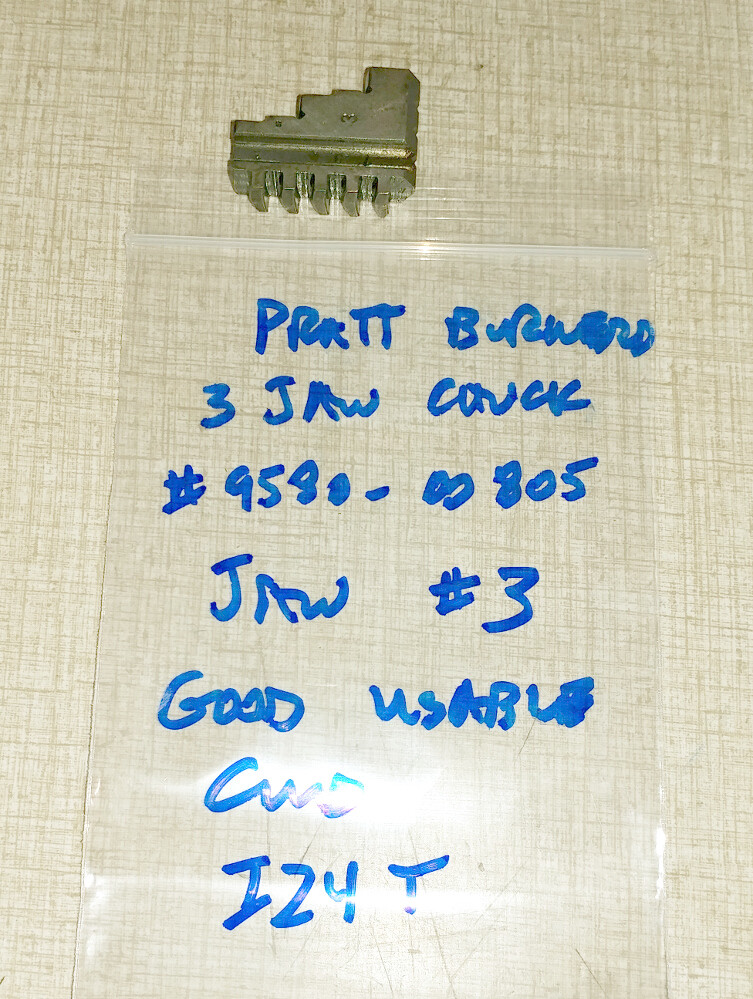 3
PRATT BURNERD
3 JAW CHUCK
#9580-00805
JAW #3
GOOD USABLE
CND
I24T